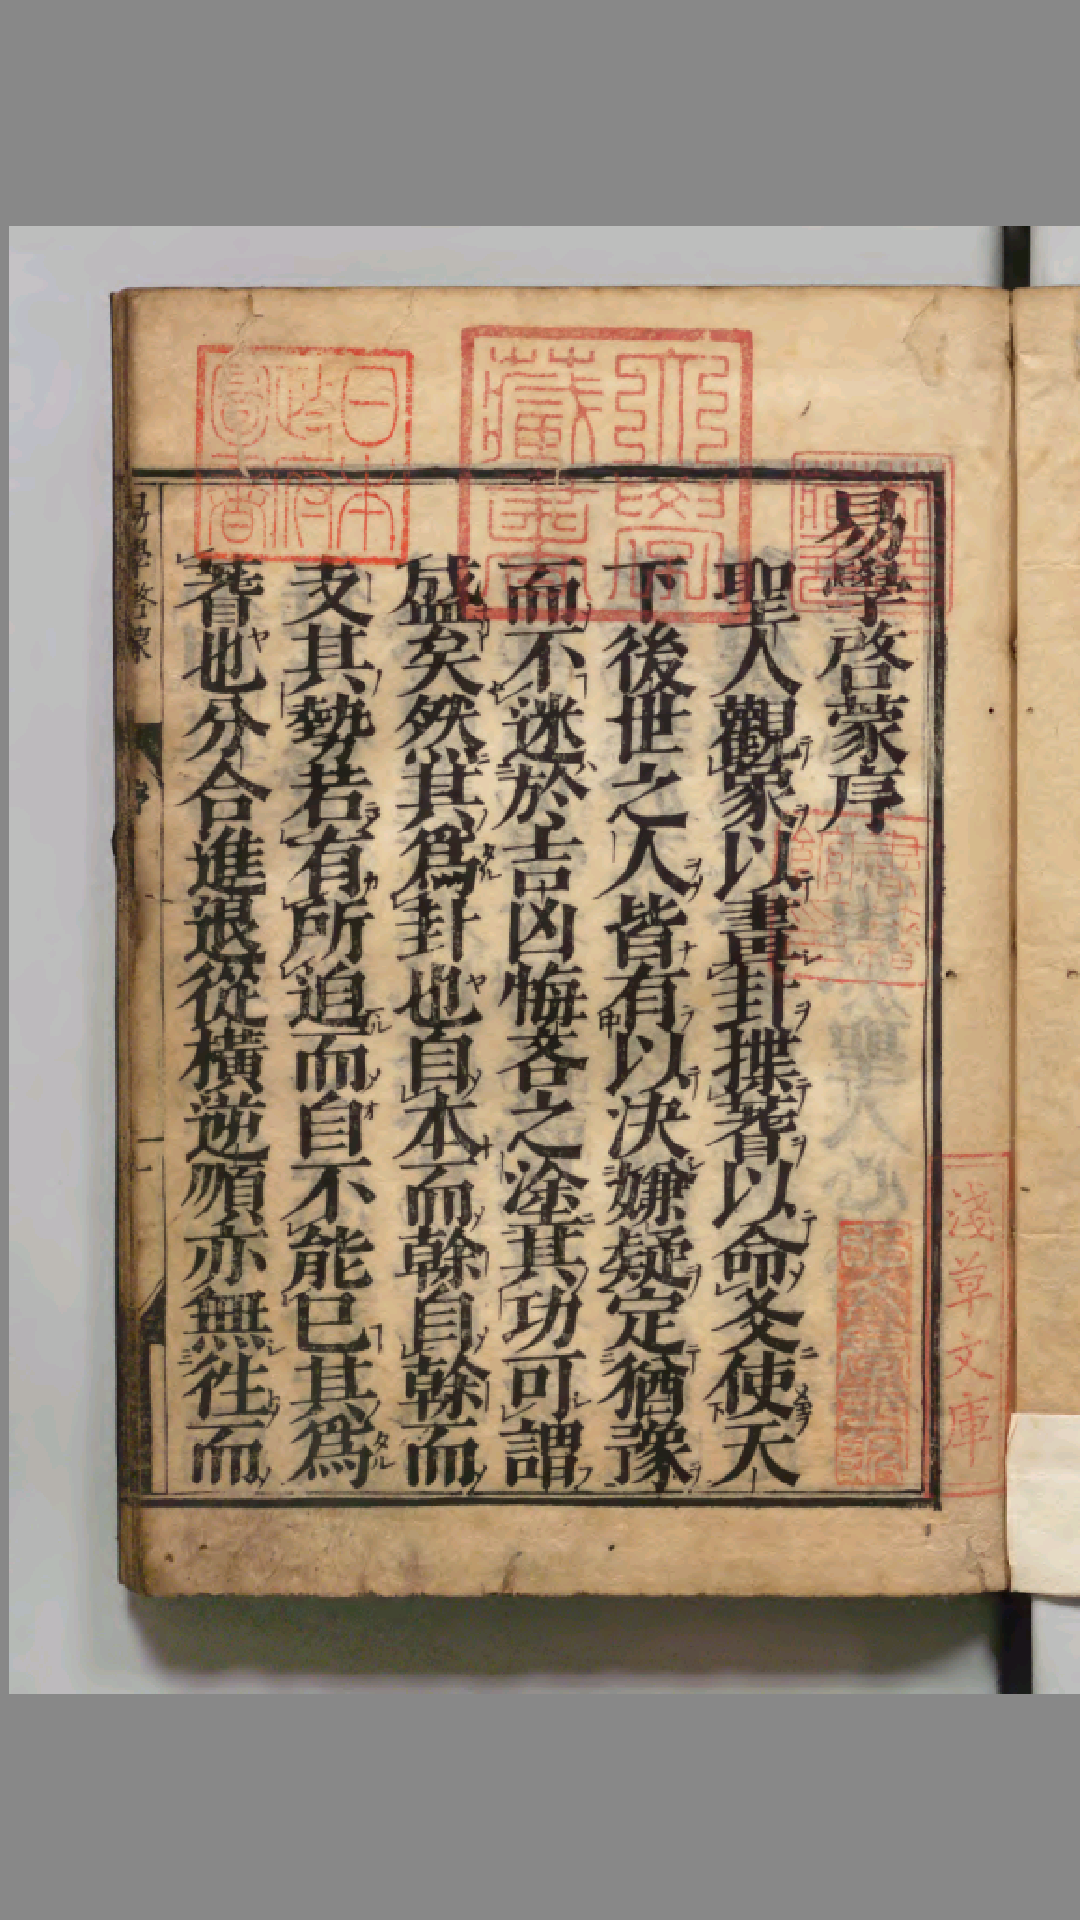 易學啓蒙序
聖人觀象以畫卦揲蓍以命爻使天
下後世之人皆有以决嫌疑定猶豫
而不迷於吉凶悔吝之塗其功可謂
盛矣然其爲卦也自本而幹自幹而
支其勢若有所迫而自不能已其爲
蓍也分合進退從橫逆順亦無徃而
易學啓蒙
序
日本
政府
圖書
淺草文庫